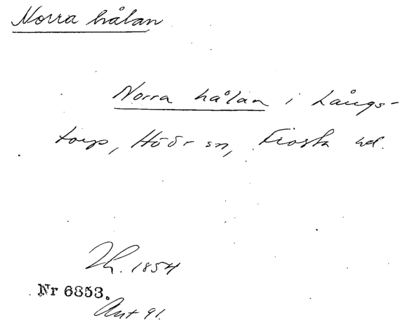 Norra hålan
Norra hålan i Långs-
torp, Höör sn, Frosta hd.
Lh. 1854
Nr 6353.
Ant 91.